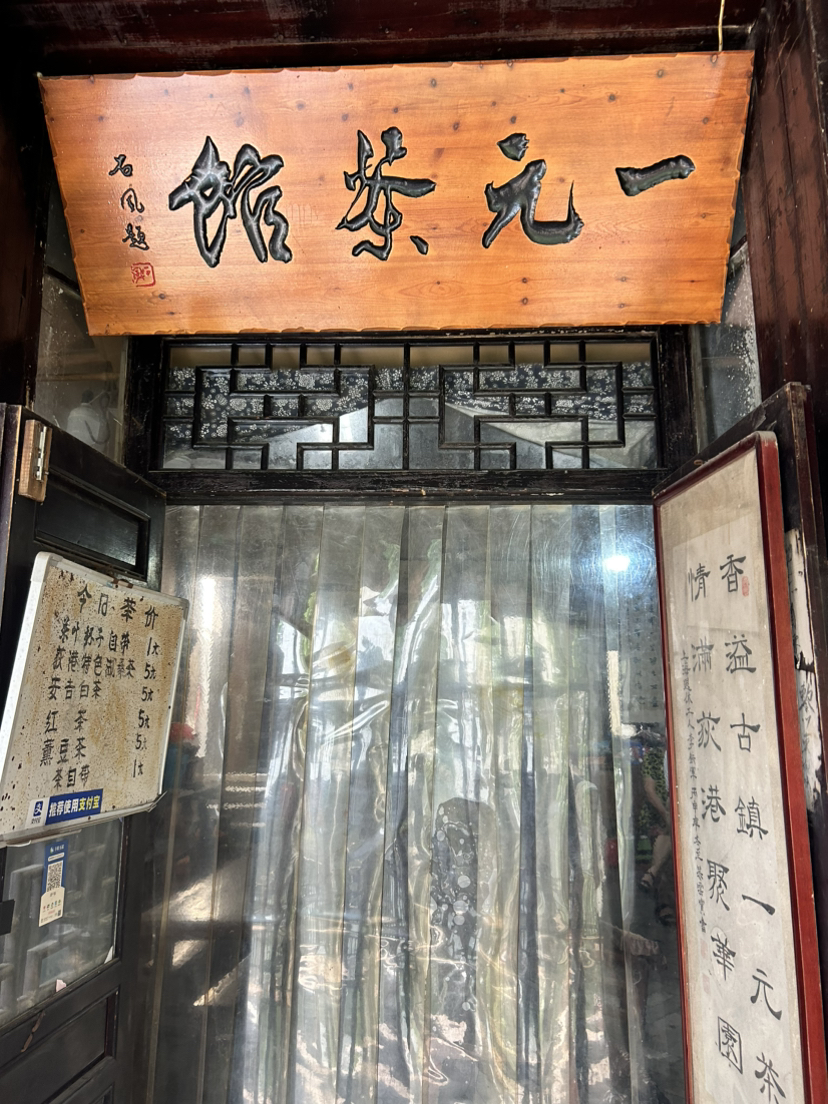 一元茶館
石風題
今日茶价
茶叶杯子自带 1元
荻港特色風桑茶 5元
安吉白茶 5元
红茶 5元
薰豆茶 5元
茶自带 1元
推荐使用支付宝
香溢古鎮一元茶
情滿荻港聚華園